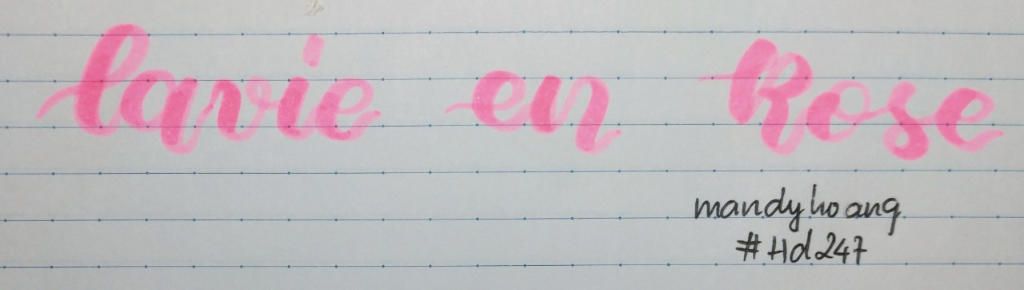 lavie en Rose
mandyhoang
#Hd247